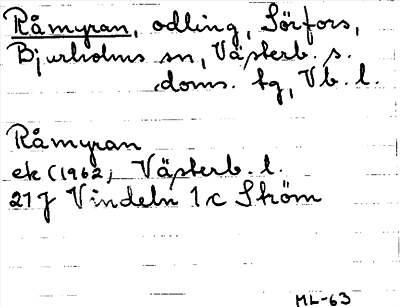 Råmyran, odling, Sörfors,
Bjurholms sn, Västerb. s.
doms. tg, Vb. l.
Råmyran
ek (1962, Västerb. l.
21 J Vindeln 1 c Ström
ML-63